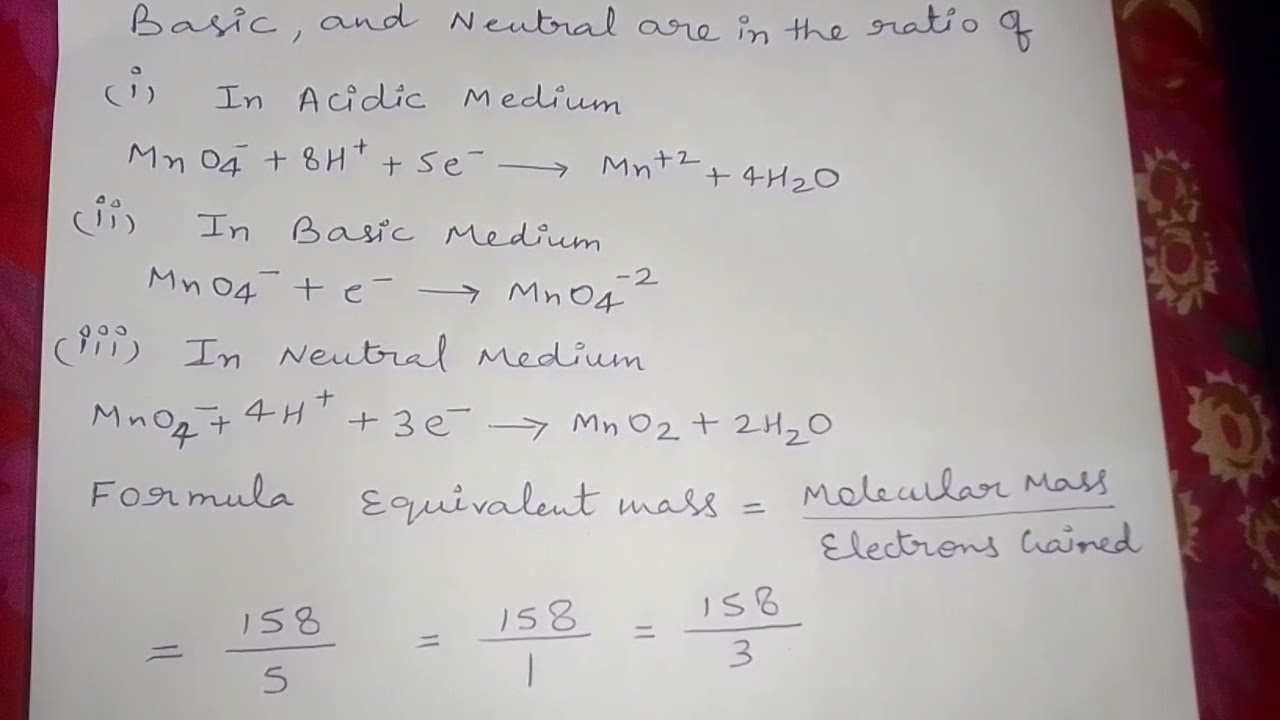 Basic, and Neutral are in the ratio of
(i) In Acidic Medium
MnO4⁻ + 8H⁺ + 5e⁻ ⟶ Mn⁺² + 4H2O
(ii) In Basic Medium
MnO4⁻ + e⁻ ⟶ MnO4⁻²
(iii) In Neutral Medium
MnO4⁻ + 4H⁺ + 3e⁻ ⟶ MnO2 + 2H2O
Formula Equivalent mass = Molecular Mass / Electrons Gained
= 158/5 = 158/1 = 158/3